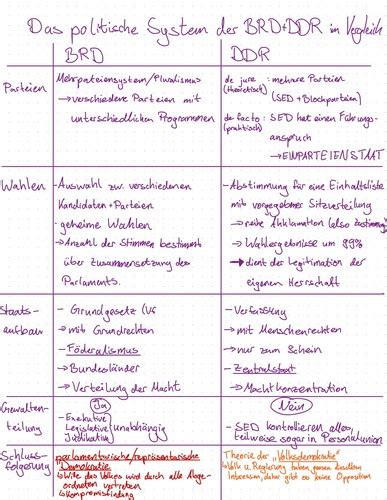 Das politische System der BRD+DDR im Vergleich
BRD
DDR
Parteien
Mehrparteiensystem/Pluralismus
→ verschiedene Parteien mit
unterschiedlichen Programmen
de jure : mehrere Parteien
(theoretisch) (SED + Blockparteien)
de facto : SED hat einen Führungs-
(praktisch) anspruch
→ EINPARTEIENSTAAT
Wahlen
- Auswahl zw. verschiedenen
Kandidaten + Parteien
- geheime Wahlen
→ Anzahl der Stimmen bestimmt
über Zusammensetzung des
Parlaments.
- Abstimmung für eine Einheitsliste
mit vorgegebener Sitzverteilung
→ reine Akklamation (also Zustimmung)
→ Wahlergebnisse um 99%
→ dient der Legitimation der
eigenen Herrschaft
Staats-
aufbau
- Grundgesetz
→ mit Grundrechten
- Föderalismus
→ Bundesländer
→ Verteilung der Macht
- Verfassung
→ mit Menschenrechten
→ nur zum Schein
- Zentralstaat
→ Machtkonzentration
Gewalten-
teilung
Ja
- Exekutive
Legislative unabhängig
Judikative
Nein
- SED kontrollieren alles,
teilweise sogar in Personalunion
Schluss-
folgerung
parlamentarische/repräsentative
Demokratie
→ Wille des Volkes wird durch alle Abge-
ordneten vertreten
→ Kompromissfindung
Theorie der "Volksdemokratie"
→ Volk u. Regierung haben genau dieselben
Interessen, daher gibt es keine Opposition